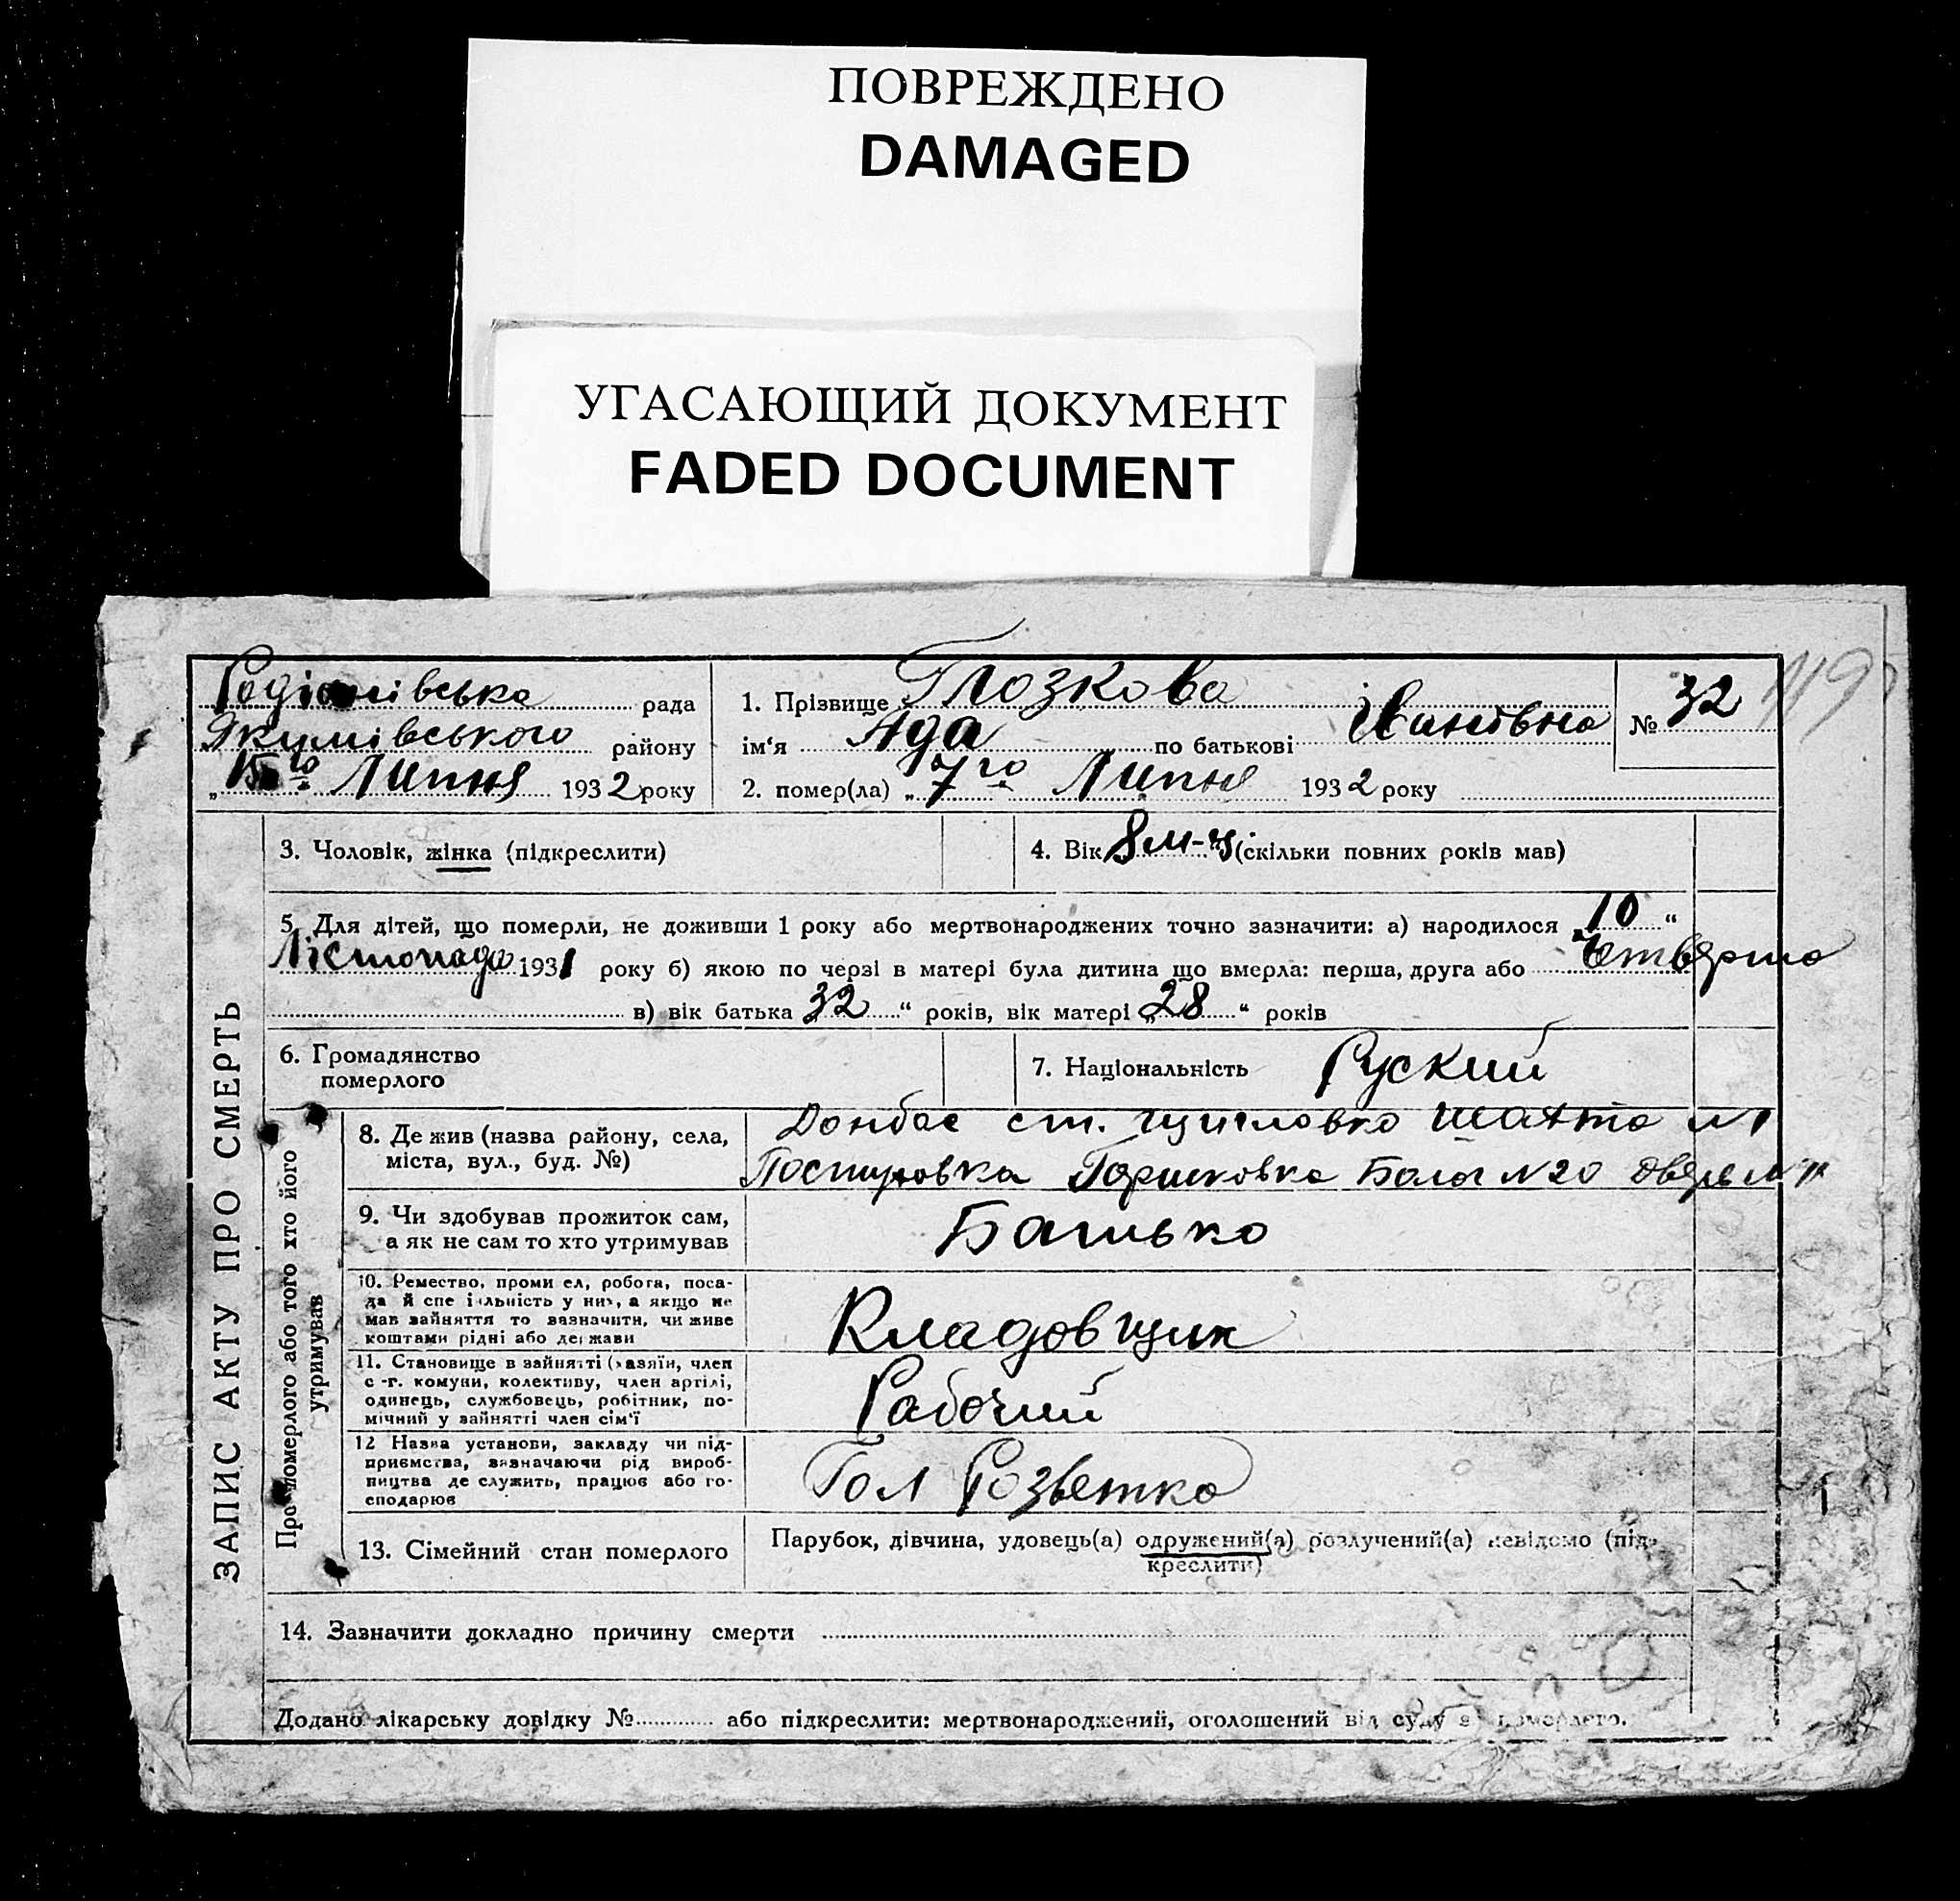 ПОВРЕЖДЕНО
DAMAGED
УГАСАЮЩИЙ ДОКУМЕНТ
FADED DOCUMENT
Родіонівська рада
Якимівського району
„15го Липня 1932 року
1. Прізвище Глозкова
ім'я Ада по батькові Іванівна
№ 32
119
2. помер(ла) „7го Липня 1932 року
ЗАПИС АКТУ ПРО СМЕРТЬ
3. Чоловік, жінка (підкреслити)
4. Вік 8 м-ц (скільки повних років мав)
5. Для дітей, що померли, не доживши 1 року або мертвонароджених точно зазначити: а) народилося „10“
Лістопада 1931 року б) якою по черзі в матері була дитина що вмерла: перша, друга або Четвярта
в) вік батька „32“ років, вік матері „28“ років
6. Громадянство
померлого
7. Національність Руский
Про померлого або того хто його
утримував
8. Де жив (назва району, села,
міста, вул., буд. №)
Донбас ст. шахта №1
Горшковка №20 Дверь №
9. Чи здобував прожиток сам,
а як не сам то хто утримував
Батько
10. Ремество, проми ел, робота, поса-
да й спе і льність у них, а якщо не
мав зайняття то зазначити, чи живе
коштами рідні або держави
Кладовщик
11. Становище в зайнятті (хазяїн, член
с-г. комуни, колективу, член артілі,
одинець, службовець, робітник, по-
мічний у зайнятті член сім'ї
Рабочий
12 Назва установи, закладу чи під-
приємства, зазначаючи рід вироб-
ництва де служить, працює або го-
сподарює
Гол Розветка
13. Сімейний стан померлого
Парубок, дівчина, удовець(а) одружений(а) розлучений(а) невідомо (під-
креслити)
14. Зазначити докладно причину смерти
Додано лікарську довідку № або підкреслити: мертвонароджений, оголошений від суду за померлого.